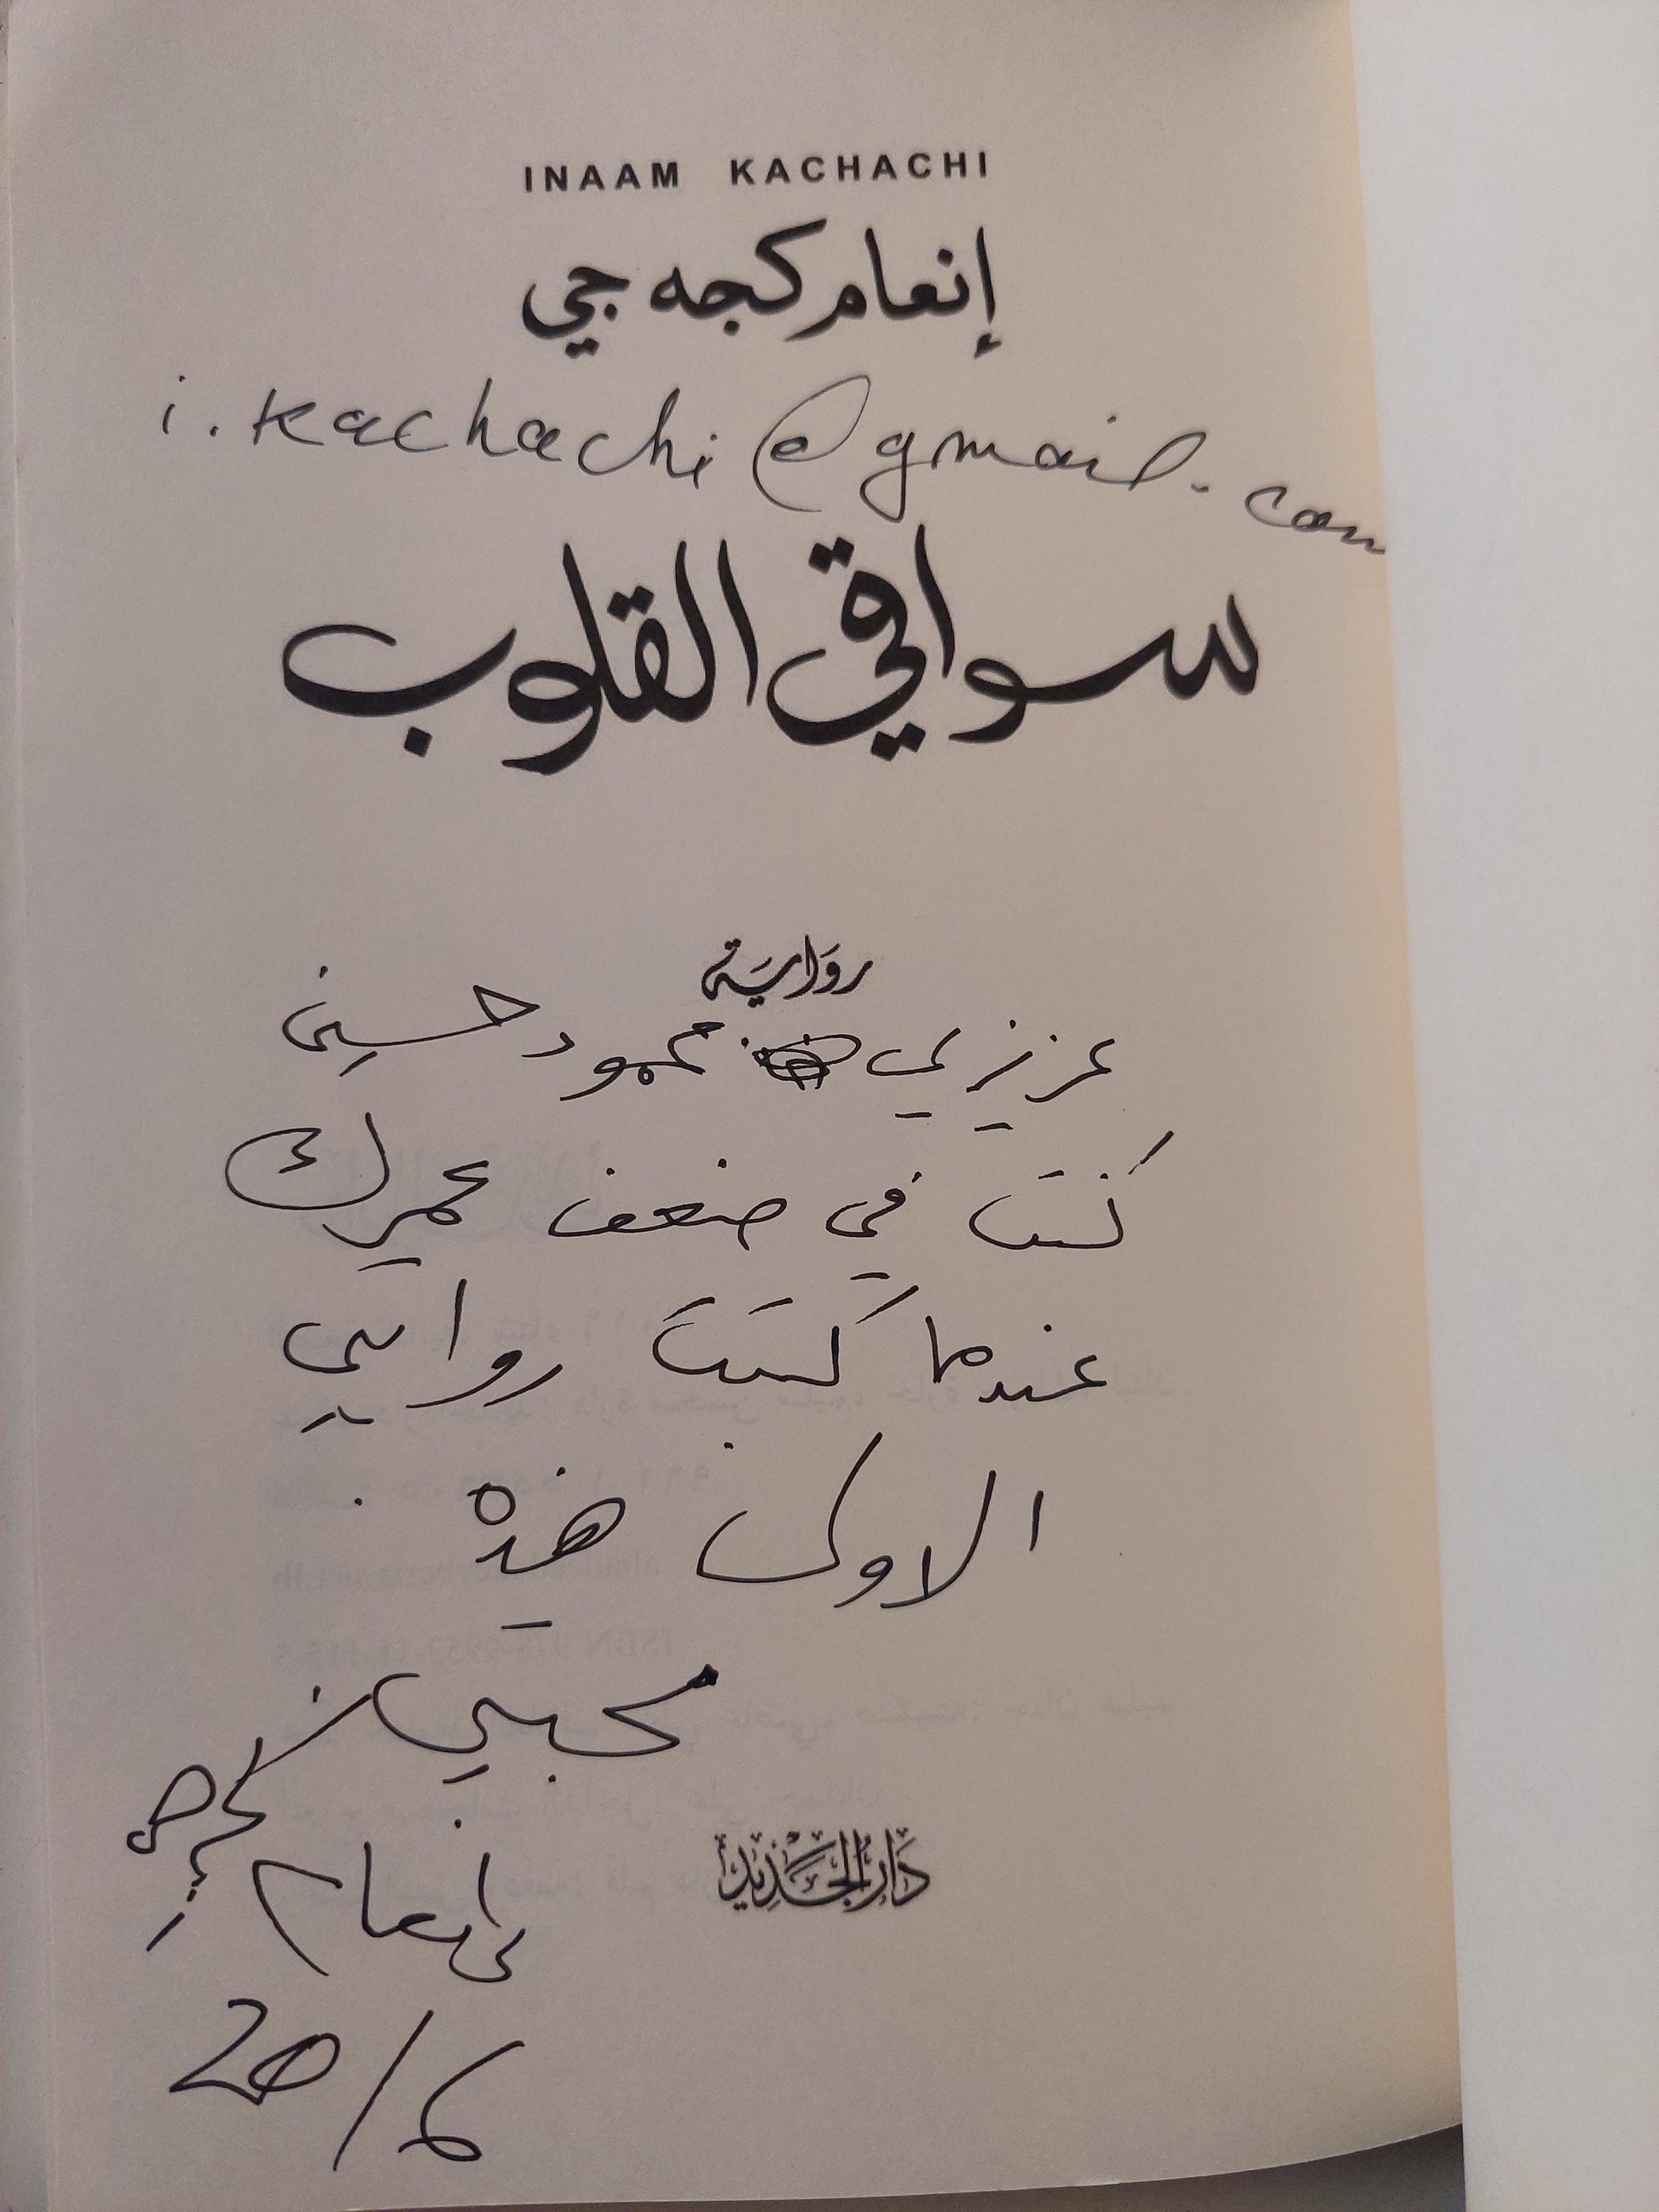 INAAM KACHACHI
إنعام كجه جي
i.kachachi@gmail.com
سواقي القلوب
رواية
عزيزي محمود حسين
كنتَ في ضعف عمرك
عندما كتبتَ روايتي
الاولى هذه .
محبتي
إنعام
دار الجديد
20/6